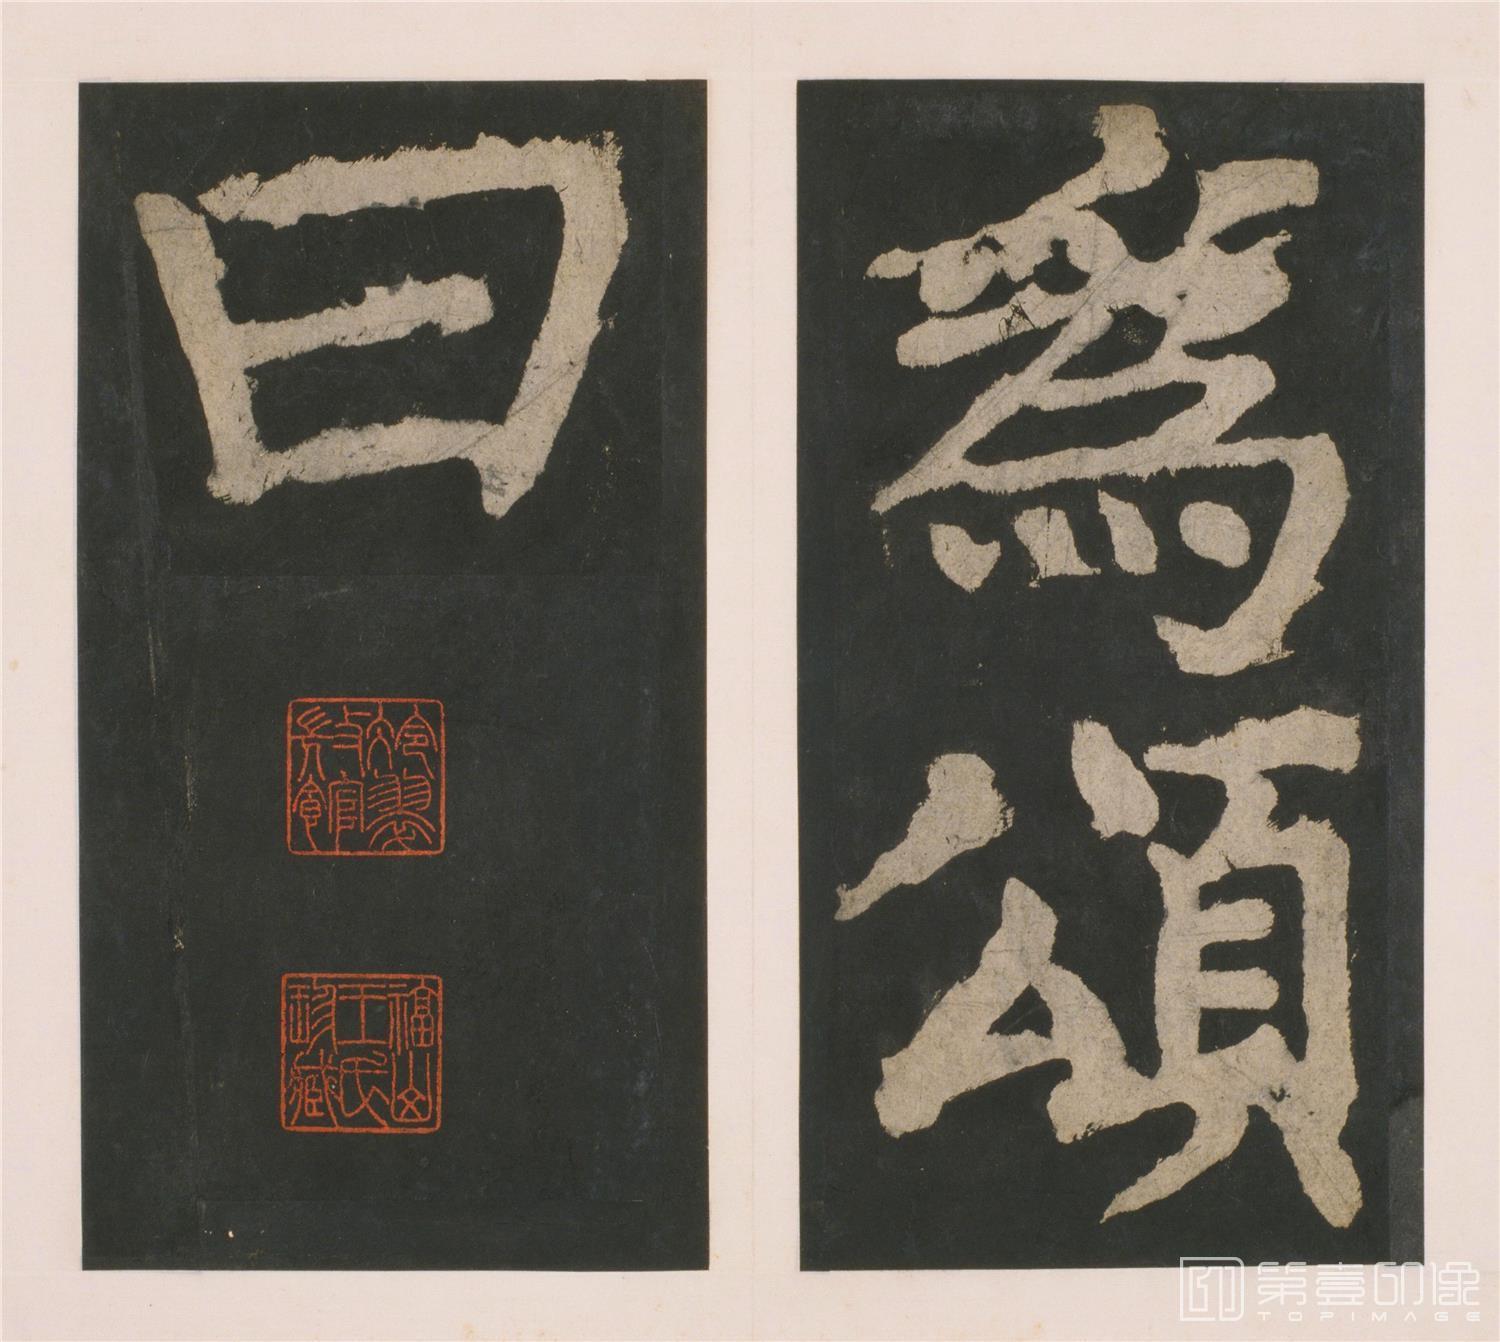 為頌
曰
福山
王氏
珍藏
第壹印像
TOPIMAGE